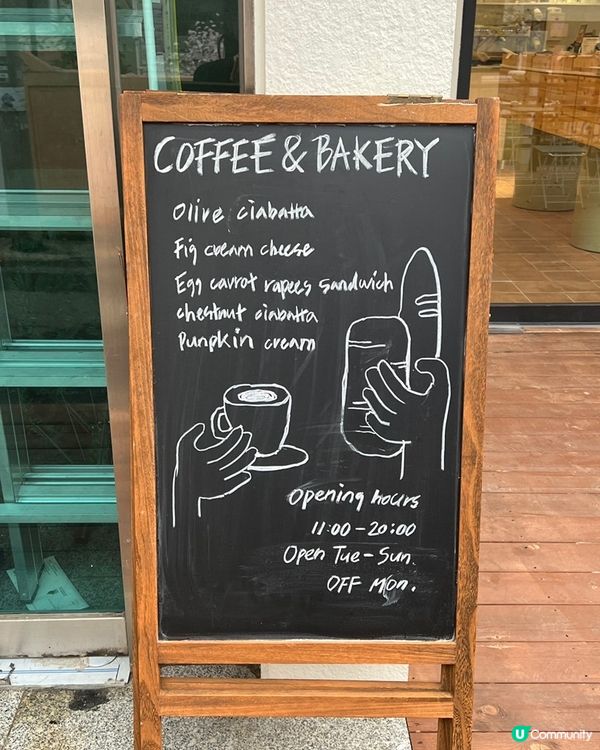 COFFEE & BAKERY
Olive ciabatta
Fig cream cheese
Egg carrot rapees sandwich
chestnut ciabatta
Punpkin cream
Opening hours
11:00-20:00
Open Tue-Sun.
OFF Mon.
U Community